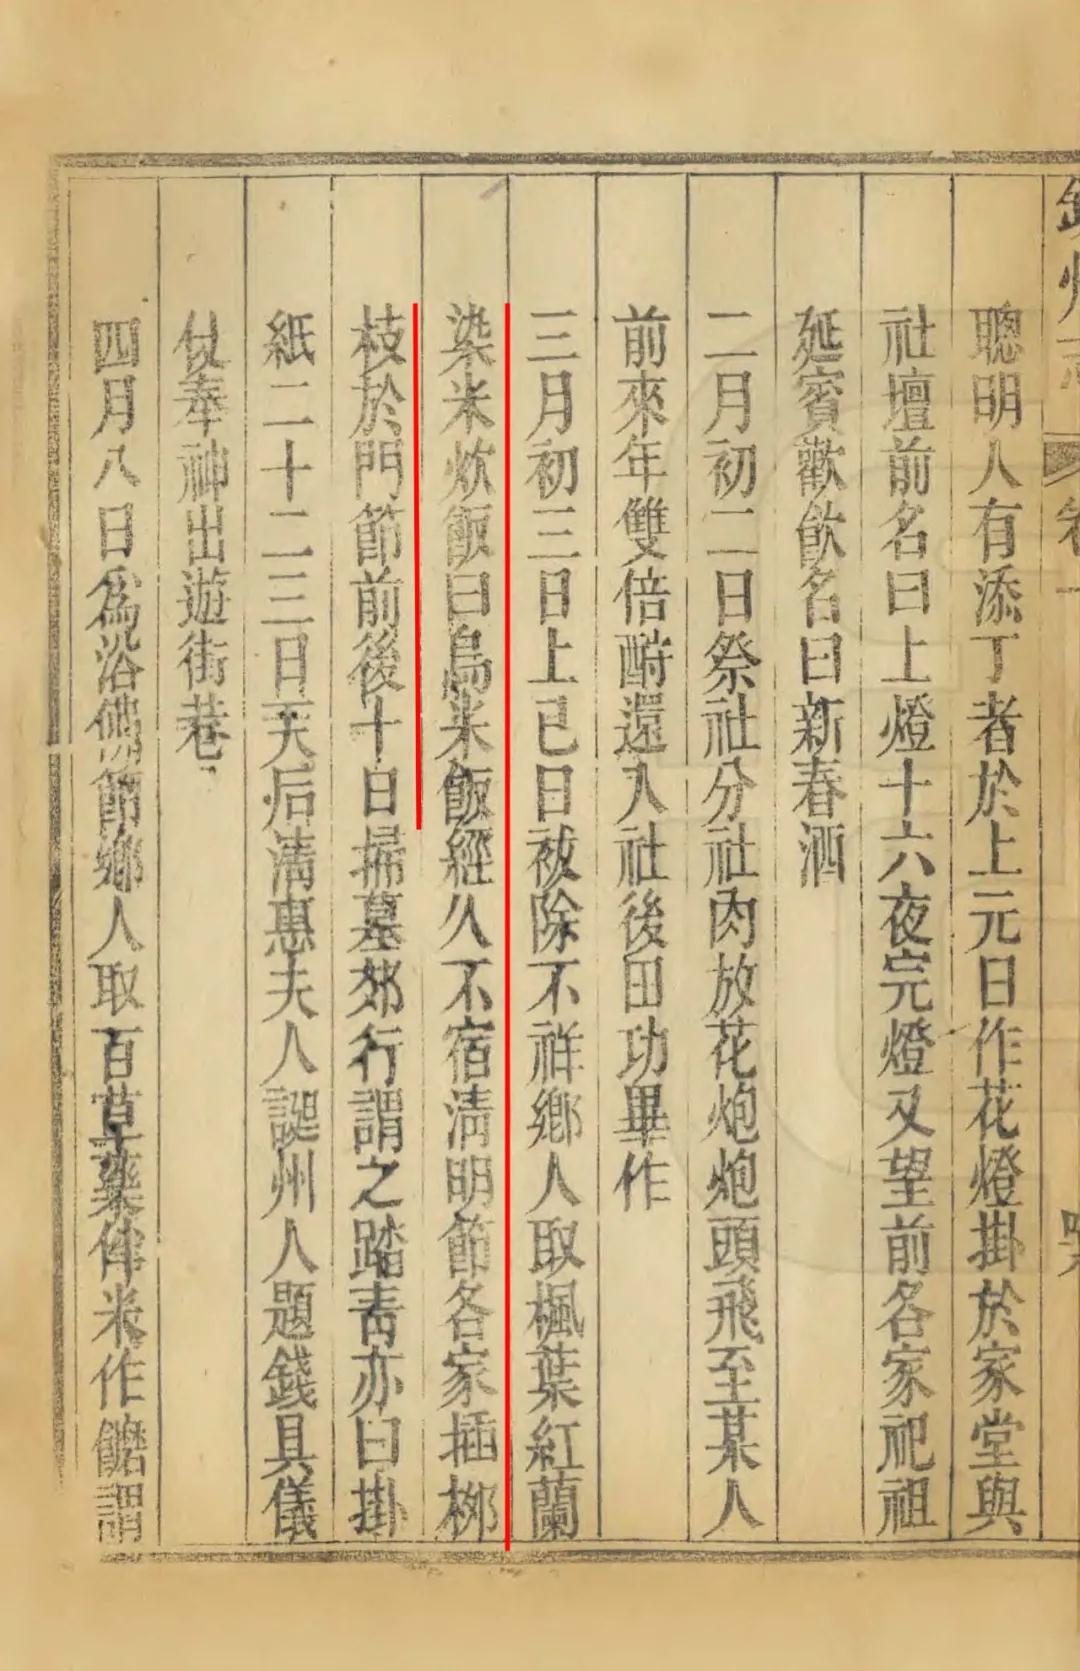 欽州志
卷一
聰明人有添丁者於上元日作花燈掛於家堂與
社壇前名曰上燈十六夜完燈又望前各家祀祖
延賓歡飲名曰新春酒
二月初二日祭社分社肉放花炮炮頭飛至某人
前來年雙倍酧還入社後田功畢作
三月初三日上巳日祓除不祥鄉人取楓葉紅蘭
染米炊飯曰烏米飯經久不宿淸明節各家插柳
枝於門節前後十日掃墓郊行謂之踏靑亦曰掛
紙二十二三日天后淸惠夫人誕州人題錢具儀
仗奉神出遊街巷
四月八日爲浴佛節鄉人取百草藥伴米作謂